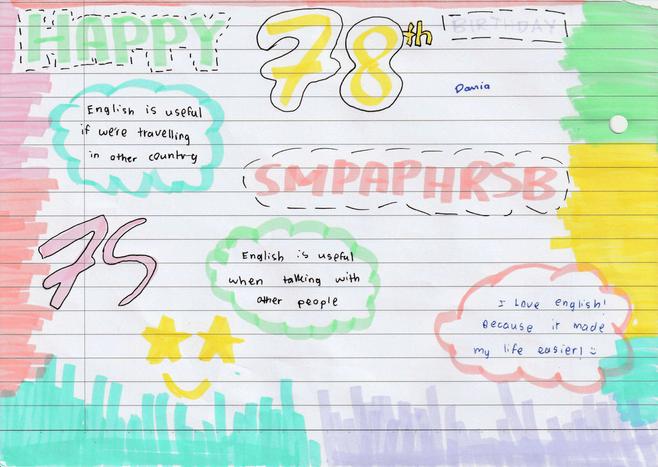 HAPPY 78th BIRTHDAY
Dania
English is useful
if we're travelling
in other country
SMPAPHRSB
75
English is useful
when talking with
other people
I Love english!
Because it made
my life easier!